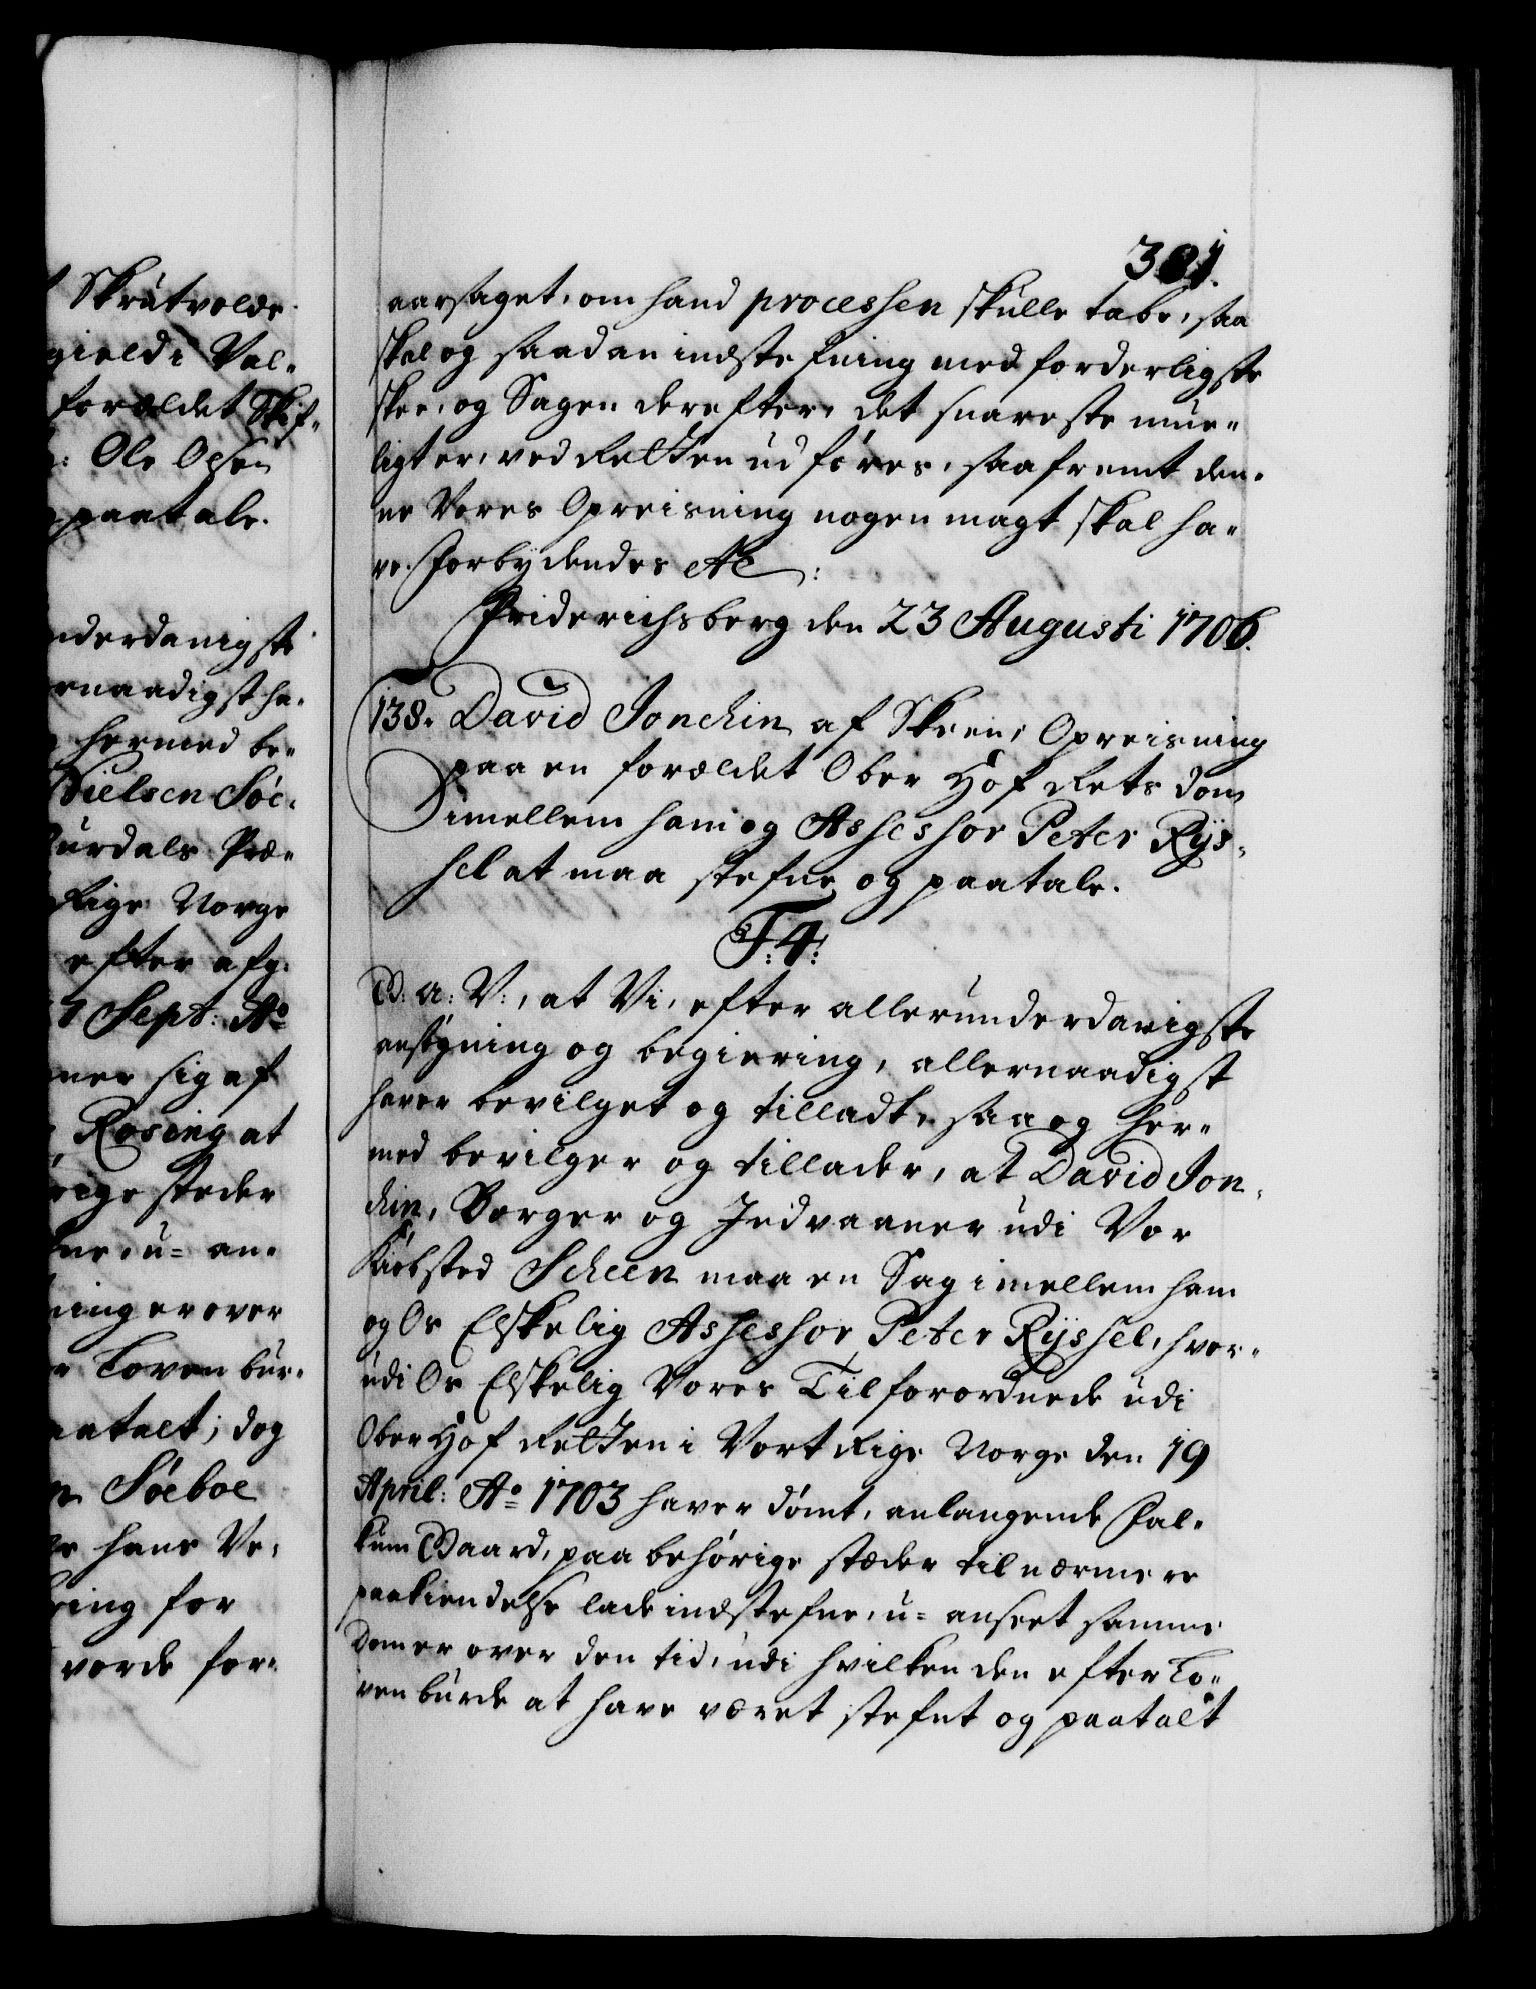 Skrutvolds
gield i Val-
forældet Skif-
: Ole Olsen
paatale.
nderdanigste
rnaadigst ha-
hermed be-
Nielsen Söe-
urdals Præ-
Rige Norge
efter afg:
7 Sept: Ao
ner sig af
Rosing at
rige steder
ne, u= an-
ning er over
Loven bur-
aatalt; dog
Söeboe
hans Ve-
ring for
vorde for-
381.
aarsaget, om hand processen skulle tabe, saa
skal og saadan indstefning med forderligste
skee, og Sagen derefter, det snareste mue-
ligt er, ved Retten udføres, saafremt den-
ne Vores Opreisning nogen magt skal ha-
ve. Forbydendes etc:
Friderichsberg den 23 Augusti 1706.
138. David Jonchin af Skeen, Opreisning
paa en forældet Ober Hof Rets dom
imellem ham og Assessor Peter Rÿs-
sel at maa stefne og paatale.
F: 4:
G: a: V:, at Vi, efter allerunderdanigste
ansögning og begiering, allernaadigst
haver bevilget og tilladt, saa og her-
med bevilger og tillader, at David Jon-
chin, Borger og Indvaaner udi Vor
Kiöbsted Scheen maa en Sag imellem ham
og Os Elskelig Assessor Peter Rÿssel, hvor-
udi Os Elskelig Vores Tilforordnede udi
Ober Hof Retten i Vort Rige Norge den 19
April: Ao 1703 haver dömt, anlangende Fal-
kum Gaard, paa behörige stæder til nærmere
paakiendelse lade indstefne, u= anseet samme
Dom er over den tid, udi hvilken den efter Lo-
ven burde at have været stefnt og paatalt